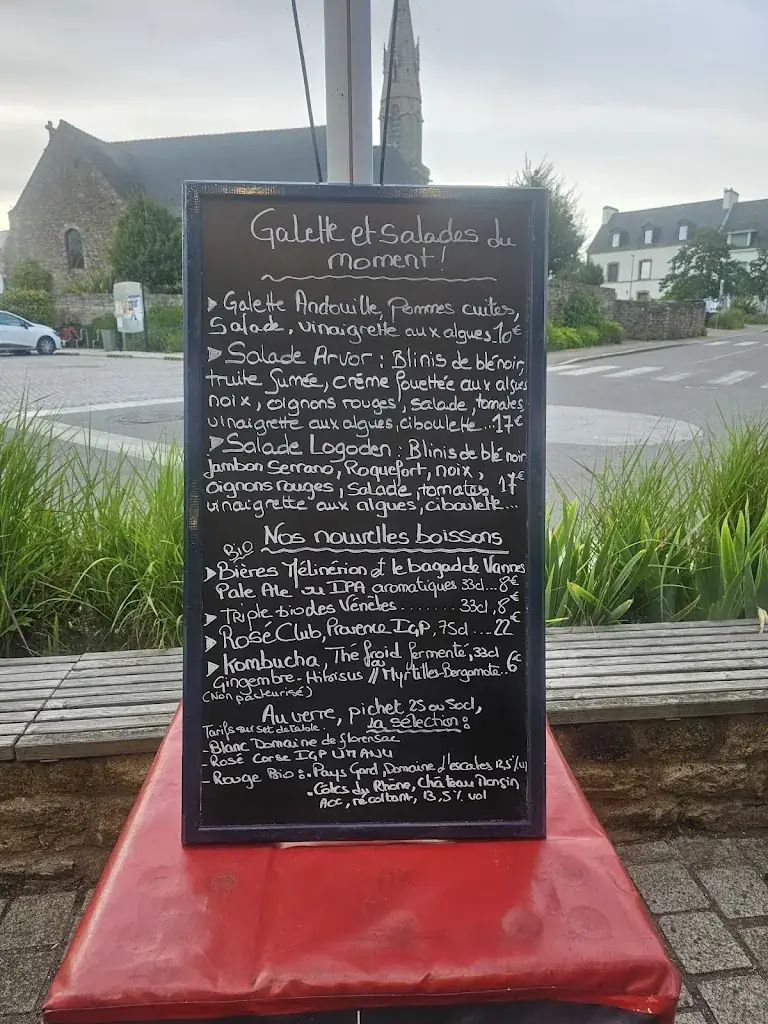 Galette et Salades du
moment!
Galette Andouille, Pommes cuites,
Salade, vinaigrette aux algues 10€
Salade Arvor : Blinis de blé noir,
truite fumée, crème fouettée aux algues
noix, oignons rouges, salade, tomates,
vinaigrette aux algues, ciboulette...17€
Salade Logoden : Blinis de blé noir
Jambon Serrano, Roquefort, noix,
Oignons rouges, Salade, tomates, 17€
vinaigrette aux algues, ciboulette...
Nos nouvelles boissons
Bio
Bières Mélinérion et le bagad de Vannes
Pale Ale ou IPA aromatiques 33cl...8€
Triple bio des Vénètes ........ 33cl, 8€
Rosé Club, Provence IGP, 75cl ....22€
Kombucha, Thé froid fermenté, 33cl
Gingembre-Hibiscus // Myrtilles-Bergamote.. 6€
(Non pasteurisé)
Au verre, pichet 25 ou 50cl,
la sélection :
Tarifs sur set de table.
- Blanc Domaine de florensac
- Rosé Corse IGP
- Rouge Bio : . Pays Gard, Domaine d'escales 12,5% vol
. Côtes du Rhône, Château
AOC, récoltant, 13,5% vol